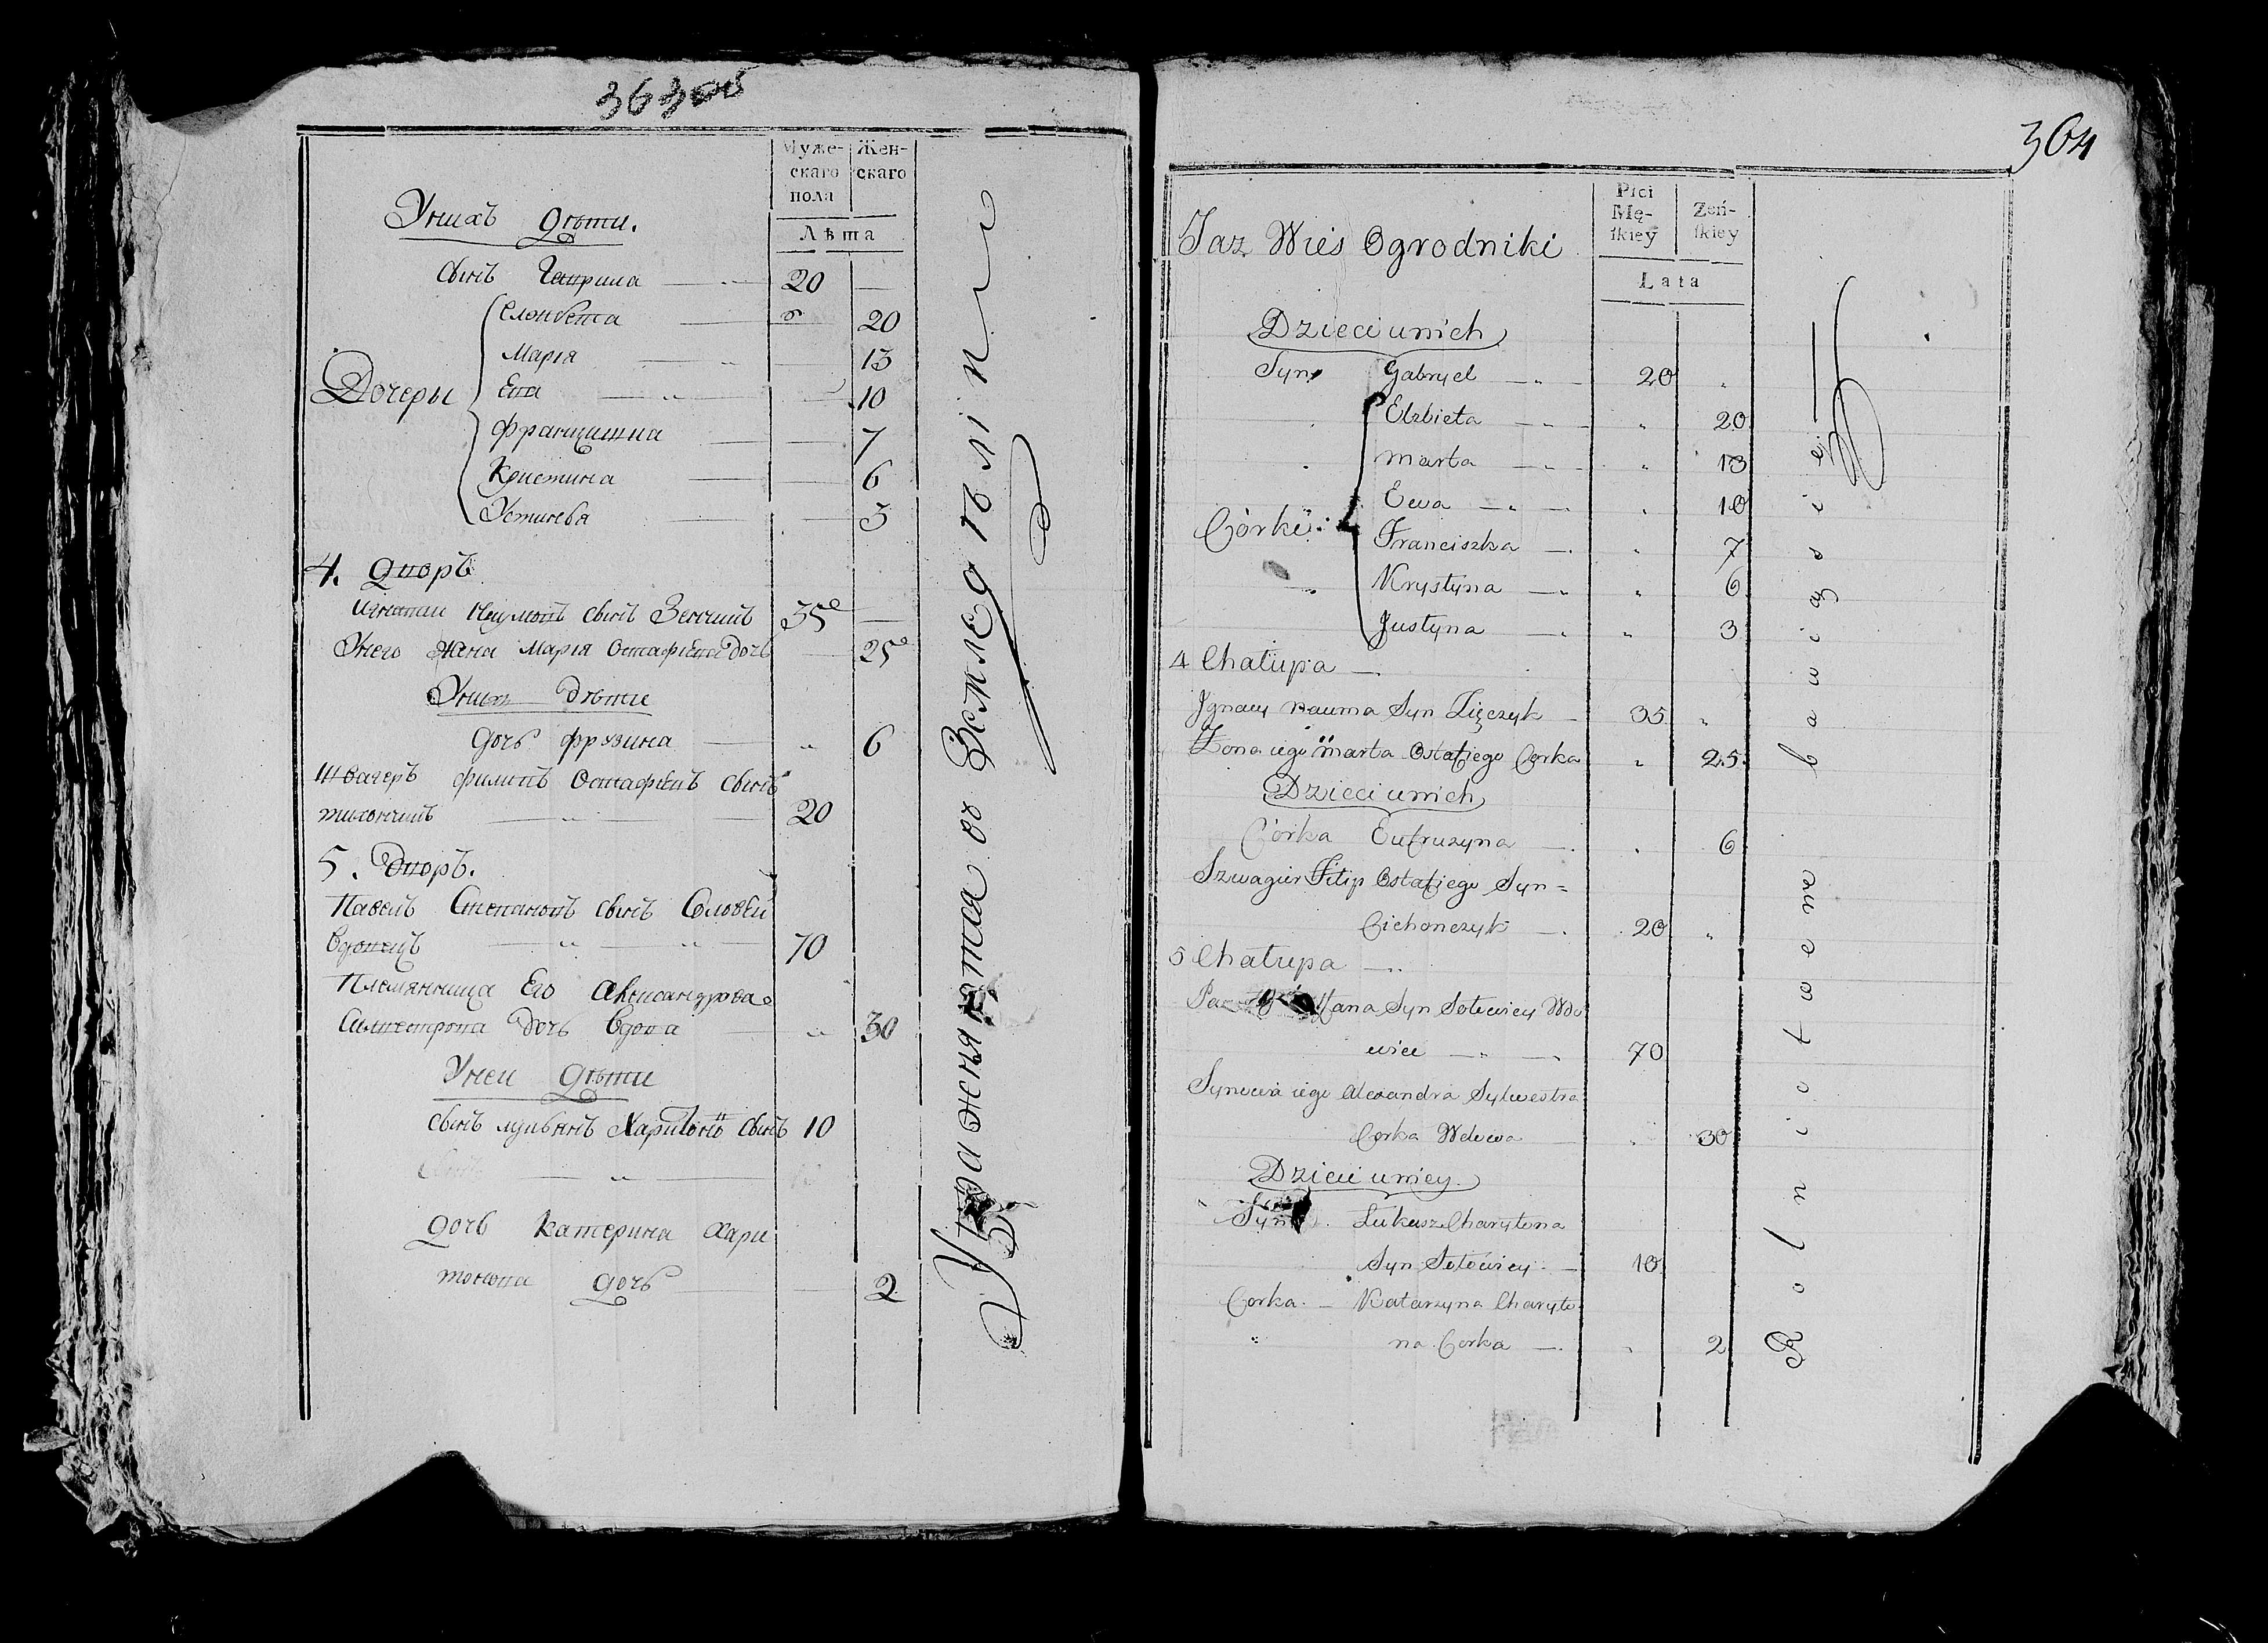 363 об
Муже-
скаго
пола
Жен-
скаго
Лѣта
Унихъ дѣти.
Сынъ Гаврила 20
Дочеры
Елзбета 20
Марія 13
Ева 10
Францишка 7
Кристина 6
Устинья 3
4. Дворъ
Игнатий Наумовъ сынъ Зенчикъ 35
Унего жена Марія Остафіева дочь 25
Унихъ дѣти
дочь Фрузина 6
Швагеръ Филипъ Остафіевъ сынъ
тихончикъ 20
5. Дворъ.
Павелъ Степановъ сынъ Соловей
вдовецъ 70
Племянница Его Александрова
Силвестрова дочь вдова 30
Унеи дѣти
сынъ лукьянъ Харитоновъ сынъ 10
дочь Катерина Хари
тонова дочь 2
Упражняются въ Земледѣліи
364
Płci
Mę-
ſkiey
Zeń-
ſkiey
Lata
Taz Wieś Ogrodniki
Dzieci unich
Syn Gabryel 20
Córki:
Elzbieta 20
Marta 13
Ewa 10
Franciszka 7
Krystyna 6
Justyna 3
4 Chałupa
Ignacy Nauma Syn Zięczyk 35
Zona iego Marta Ostafiego Corka 25.
Dzieci unich
Córka Eufruzyna 6
Szwagier Filip Ostafiego Syn =
Cichonczyk 20
5 Chałupa
Syn Sołowiey Wdo
wiec 70
Synowa iego Alexandra Sylwestra
Corka Wdowa 30
Dzieci uniey.
Syn Łukasz Charytona
Syn Sołowiey 10
Corka Katarzyna Charyto
na Corka 2
Rolnictwem bawią się